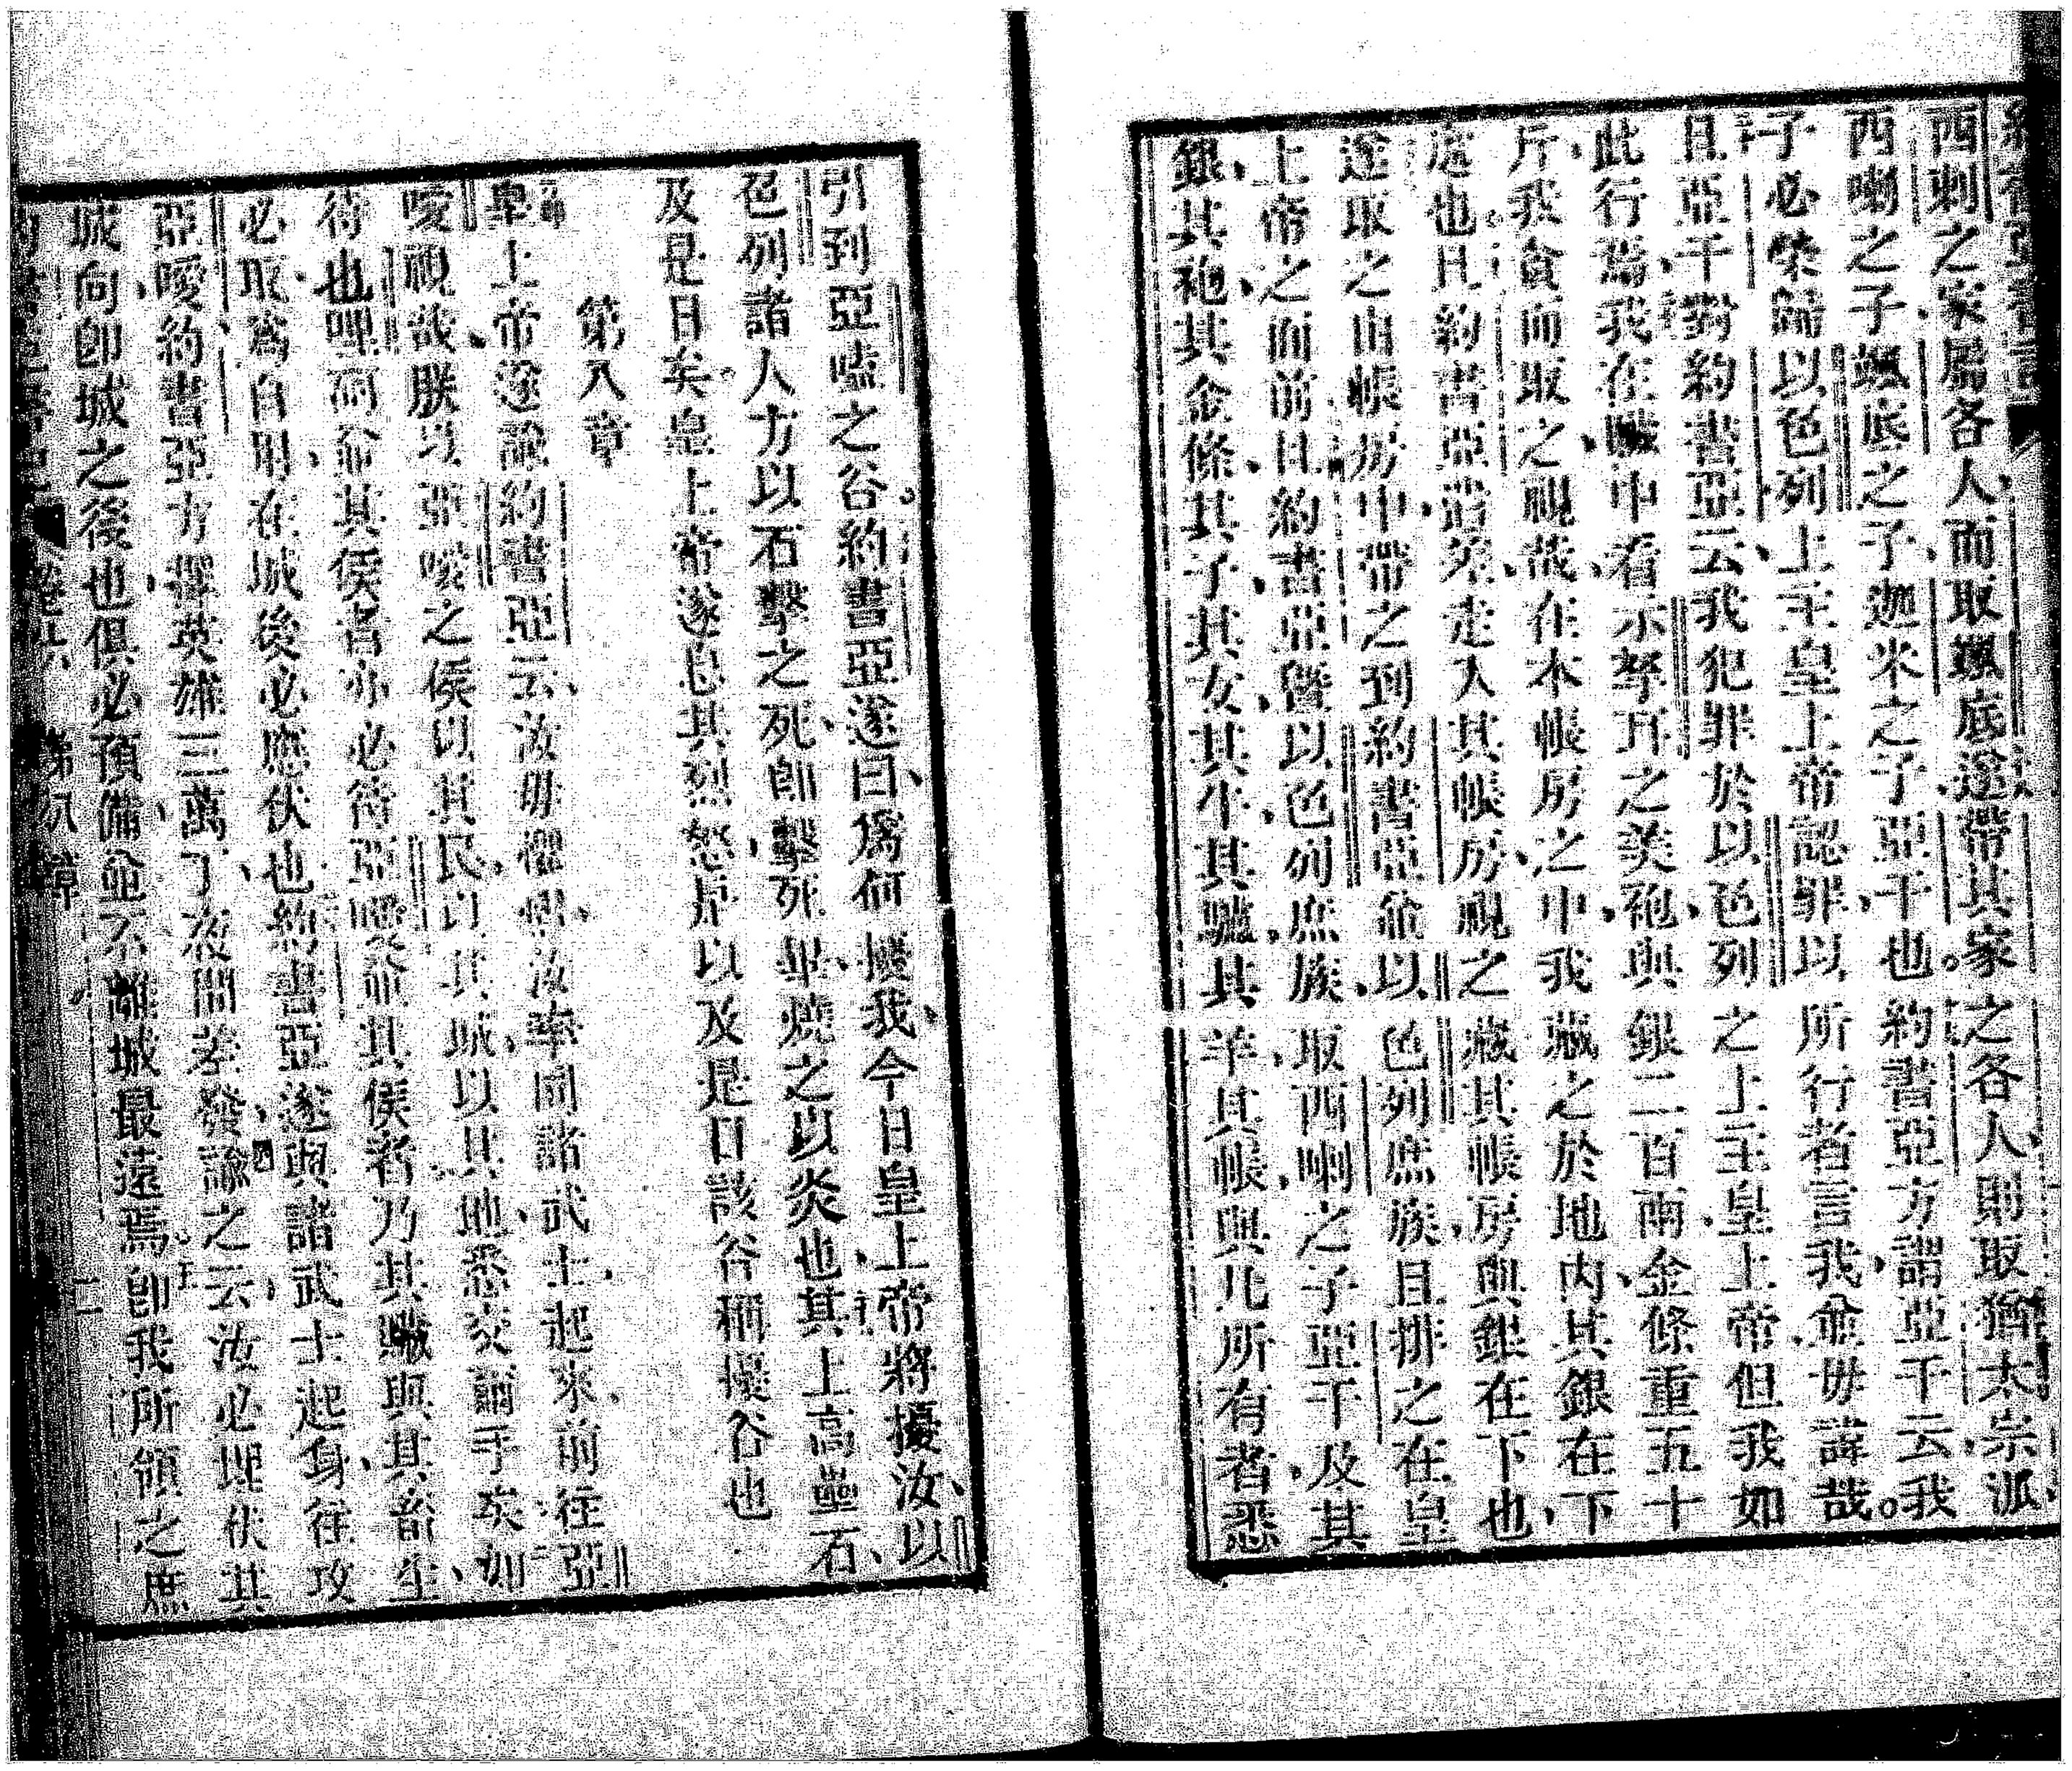 西剌之家屬各人而取颯底遂帶其家之各人則取猶太宗派
西喇之子颯底之子迦米之子亞干也約書亞方謂亞干云我
子必榮歸以色列上主皇上帝認罪以所行者言我知毋諱哉
且亞干對約書亞云我犯罪於以色列之上主皇上帝但我如
此行焉我在贓中看示拏耳之美袍與銀二百兩金條重五十
斤我貪而取之視哉在本帳房之中我藏之於地內其銀在下
處也且約書亞遣差走入其帳房視之藏其帳房與銀在下也
遂取之由帳房中帶之到約書亞爺以色列庶族且排之在皇
上帝之面前且約書亞暨以色列庶族取西喇之子亞干及其
銀其袍其金條其子其女其牛其驢其羊其帳與凡所有者悉
引到亞嗑之谷約書亞遂曰為何擾我今日皇上帝將擾汝以
色列諸人方以石擊之死即擊死畢燒之以炎也其上高壘石
及是日矣皇上帝遂息其烈怒是以及是日該谷稱擾谷也
第八章
皇上帝遂諭約書亞云汝毋懼汝率同諸武士起來前往亞
噯視哉朕以亞噯之侯以其民以其城以其地悉交謂手矣如
待也耶爾爺其侯者亦必待亞噯爺其侯者乃其贓與其畜生
必取為自用在城後必應伏也約書亞遂與諸武士起身往攻
亞噯約書亞方擇英雄三萬丁夜間差發諭之云汝必埋伏其
城向即城之後也俱必預備並不離城最遠焉即我所領之庶
卷六 第八章 二